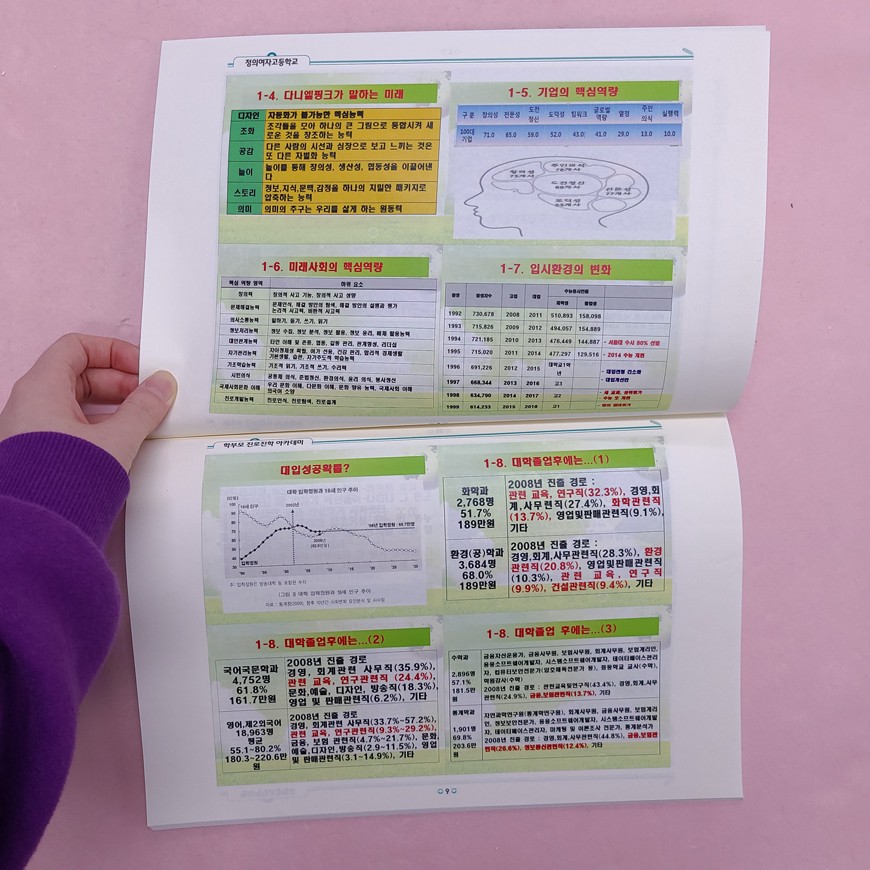 정의여자고등학교
1-4. 다니엘핑크가 말하는 미래
디자인 자동화가 불가능한 핵심능력
조화 조각들을 모아 하나의 큰 그림으로 통합시켜 새
로운 것을 창조하는 능력
공감 다른 사람의 시선과 심장으로 보고 느끼는 것은
또 다른 차별화 능력
놀이 놀이를 통해 창의성, 생산성, 협동성을 이끌어낸
다
스토리 정보,지식,문맥,감정을 하나의 치밀한 패키지로
압축하는 능력
의미 의미의 추구는 우리를 살게 하는 원동력
1-5. 기업의 핵심역량
구 분 창의성 전문성 도전정신 도덕성 팀워크 글로벌역량 열정 주인의식 실행력
100대기업 71.0 65.0 59.0 52.0 43.0 41.0 29.0 13.0 10.0
창의성
71개사
주인의식
도전정신
전문성
도덕성
1-6. 미래사회의 핵심역량
핵심 역량 영역 하위 요소
창의력 창의적 사고 기능, 창의적 사고 성향
문제해결능력 문제인식, 해결 방안의 탐색, 해결 방안의 실행과 평가
논리적 사고력, 비판적 사고력
의사소통능력 말하기, 듣기, 쓰기, 읽기
정보처리능력 정보 수집, 정보 분석, 정보 활용, 정보 윤리, 매체 활용능력
대인관계능력 타인 이해 및 존중, 협동, 갈등 관리, 관계형성, 리더십
자기관리능력 자아정체성 확립, 여가 선용, 건강 관리, 합리적 경제생활
기본생활, 습관, 자기주도적 학습능력
기초학습능력 기초적 읽기, 기초적 쓰기, 수리력
시민의식 공동체 의식, 준법정신, 환경의식, 윤리 의식, 봉사정신
국제사회문화 이해 우리 문화 이해, 다문화 이해, 문화 향유 능력, 국제사회 이해
외국어 소양
진로개발능력 진로인식, 진로탐색, 진로설계
1-7. 입시환경의 변화
출생 출생자수 고입 대입 수능응시인원
재학생 졸업생
1992 730,678 2008 2011 510,893 158,098
1993 715,826 2009 2012 494,057 154,889
1994 721,185 2010 2013 476,449 144,887 - 서울대 수시 80% 선발
1995 715,020 2011 2014 477,297 129,516 - 2014 수능 개편
1996 691,226 2012 2015 대학교1학년 - 대입전형 간소화
1997 668,344 2013 2016 고3 - 대입개선안
1998 634,790 2014 2017 고2
1999 614,233 2015 2018 고1
학부모 진로진학 아카데미
대입성공확률?
대학 입학정원과 18세 인구 추이
18세 인구
입학정원
1-8. 대학졸업후에는...(1)
화학과
2,768명
51.7%
189만원
2008년 진출 경로 :
관련 교육, 연구직(32.3%), 경영,회
계,사무관련직(27.4%), 화학관련직
(13.7%), 영업및판매관련직(9.1%),
기타
환경(공)학과
3,684명
68.0%
189만원
2008년 진출 경로 :
경영,회계,사무관련직(28.3%), 환경
관련직(20.8%), 영업및판매관련직
(10.3%), 관련 교육, 연구직
(9.9%), 건설관련직(9.4%), 기타
1-8. 대학졸업후에는...(2)
국어국문학과
4,752명
61.8%
161.7만원
2008년 진출 경로
경영, 회계관련 사무직(35.9%),
관련 교육, 연구관련직 (24.4%),
문화,예술, 디자인, 방송직(18.3%),
영업 및 판매관련직(6.2%), 기타
영어,제2외국어
18,963명
평균
55.1~80.2%
180.3~220.6만
원
2008년 진출 경로
경영, 회계관련 사무직(33.7%~57.2%),
관련 교육, 연구관련직(9.3%~29.2%),
금융, 보험 관련직(4.7%~21.7%), 문화,
예술,디자인,방송직(2.9~11.5%), 영업
및 판매관련직(3.1~14.9%), 기타
1-8. 대학졸업 후에는...(3)
수학과
2,896명
57.1%
181.5만원
금융자산운용가, 금융사무원, 보험사무원, 회계사무원, 보험계리인,
응용소프트웨어개발자, 시스템소프트웨어개발자, 데이터베이스관리
자, 컴퓨터보안전문가(암호해독전문가 등), 중등학교 교사(수학),
학원강사(수학)
2008년 진출 경로 : 관련교육및연구직(43.4%), 경영,회계,사무
관련직(24.9%), 금융,보험관련직(13.7%), 기타
통계학과
1,901명
69.8%
203.6만원
자연과학연구원(통계학연구원), 회계사무원, 금융사무원, 보험계리
인, 정보보안전문가, 응용소프트웨어개발자, 시스템소프트웨어개발
자, 데이터베이스관리자, 마케팅 및 여론조사 전문가, 통계분석가
2008년 진출 경로 : 경영,회계,사무관련직(44.8%), 금융,보험관
련직(26.6%), 정보통신관련직(12.4%), 기타
9